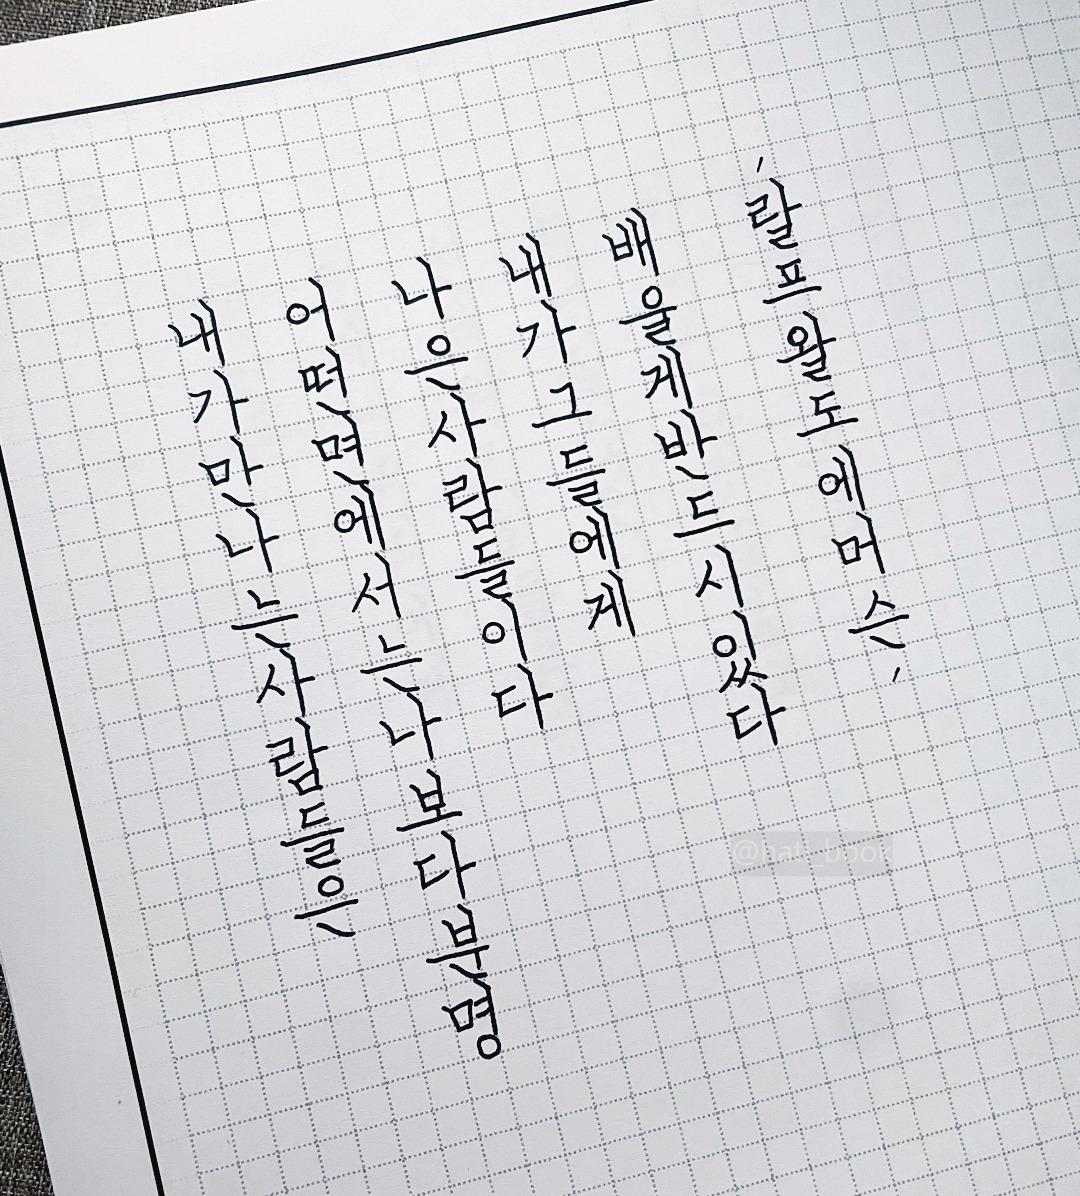 내가 만나는 사람들은
어떤 면에서는 나보다 분명
나은 사람들이다
내가 그들에게
배울게 반드시 있다
'랄프 왈도 에머슨'
@hati_book